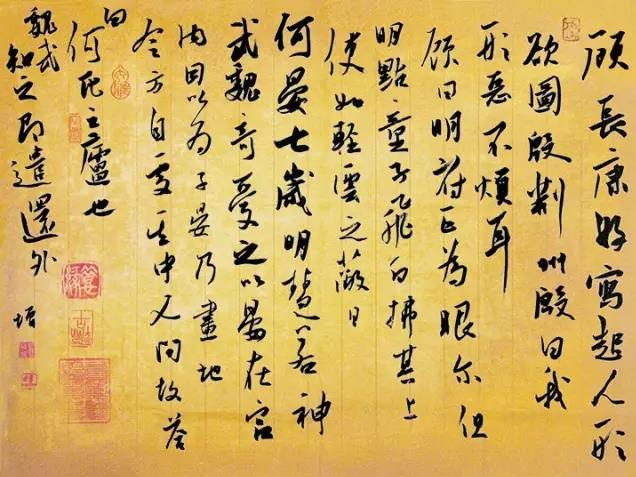 顧長康好寫起人形
欲圖殷荊州殷曰我
形惡不煩耳
顧曰明府正為眼尔但
明點童子飛白拂其上
使如輕雲之蔽日
何晏七歲明慧若神
武魏奇愛之以晏在宮
內因以為子晏乃畫地
令方自處其中人問故答
曰何氏之廬也
魏武知之即遣還外